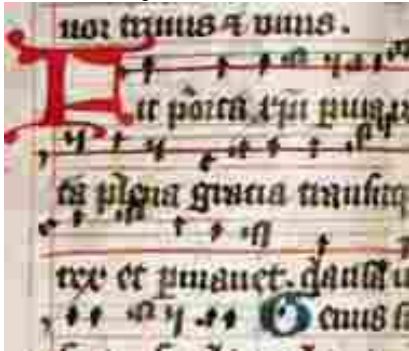 nor trinus et unus.
Fit porta xp̄i puia
ta plena gratia transitq
rex et p̄manet. clausa u
Genus s